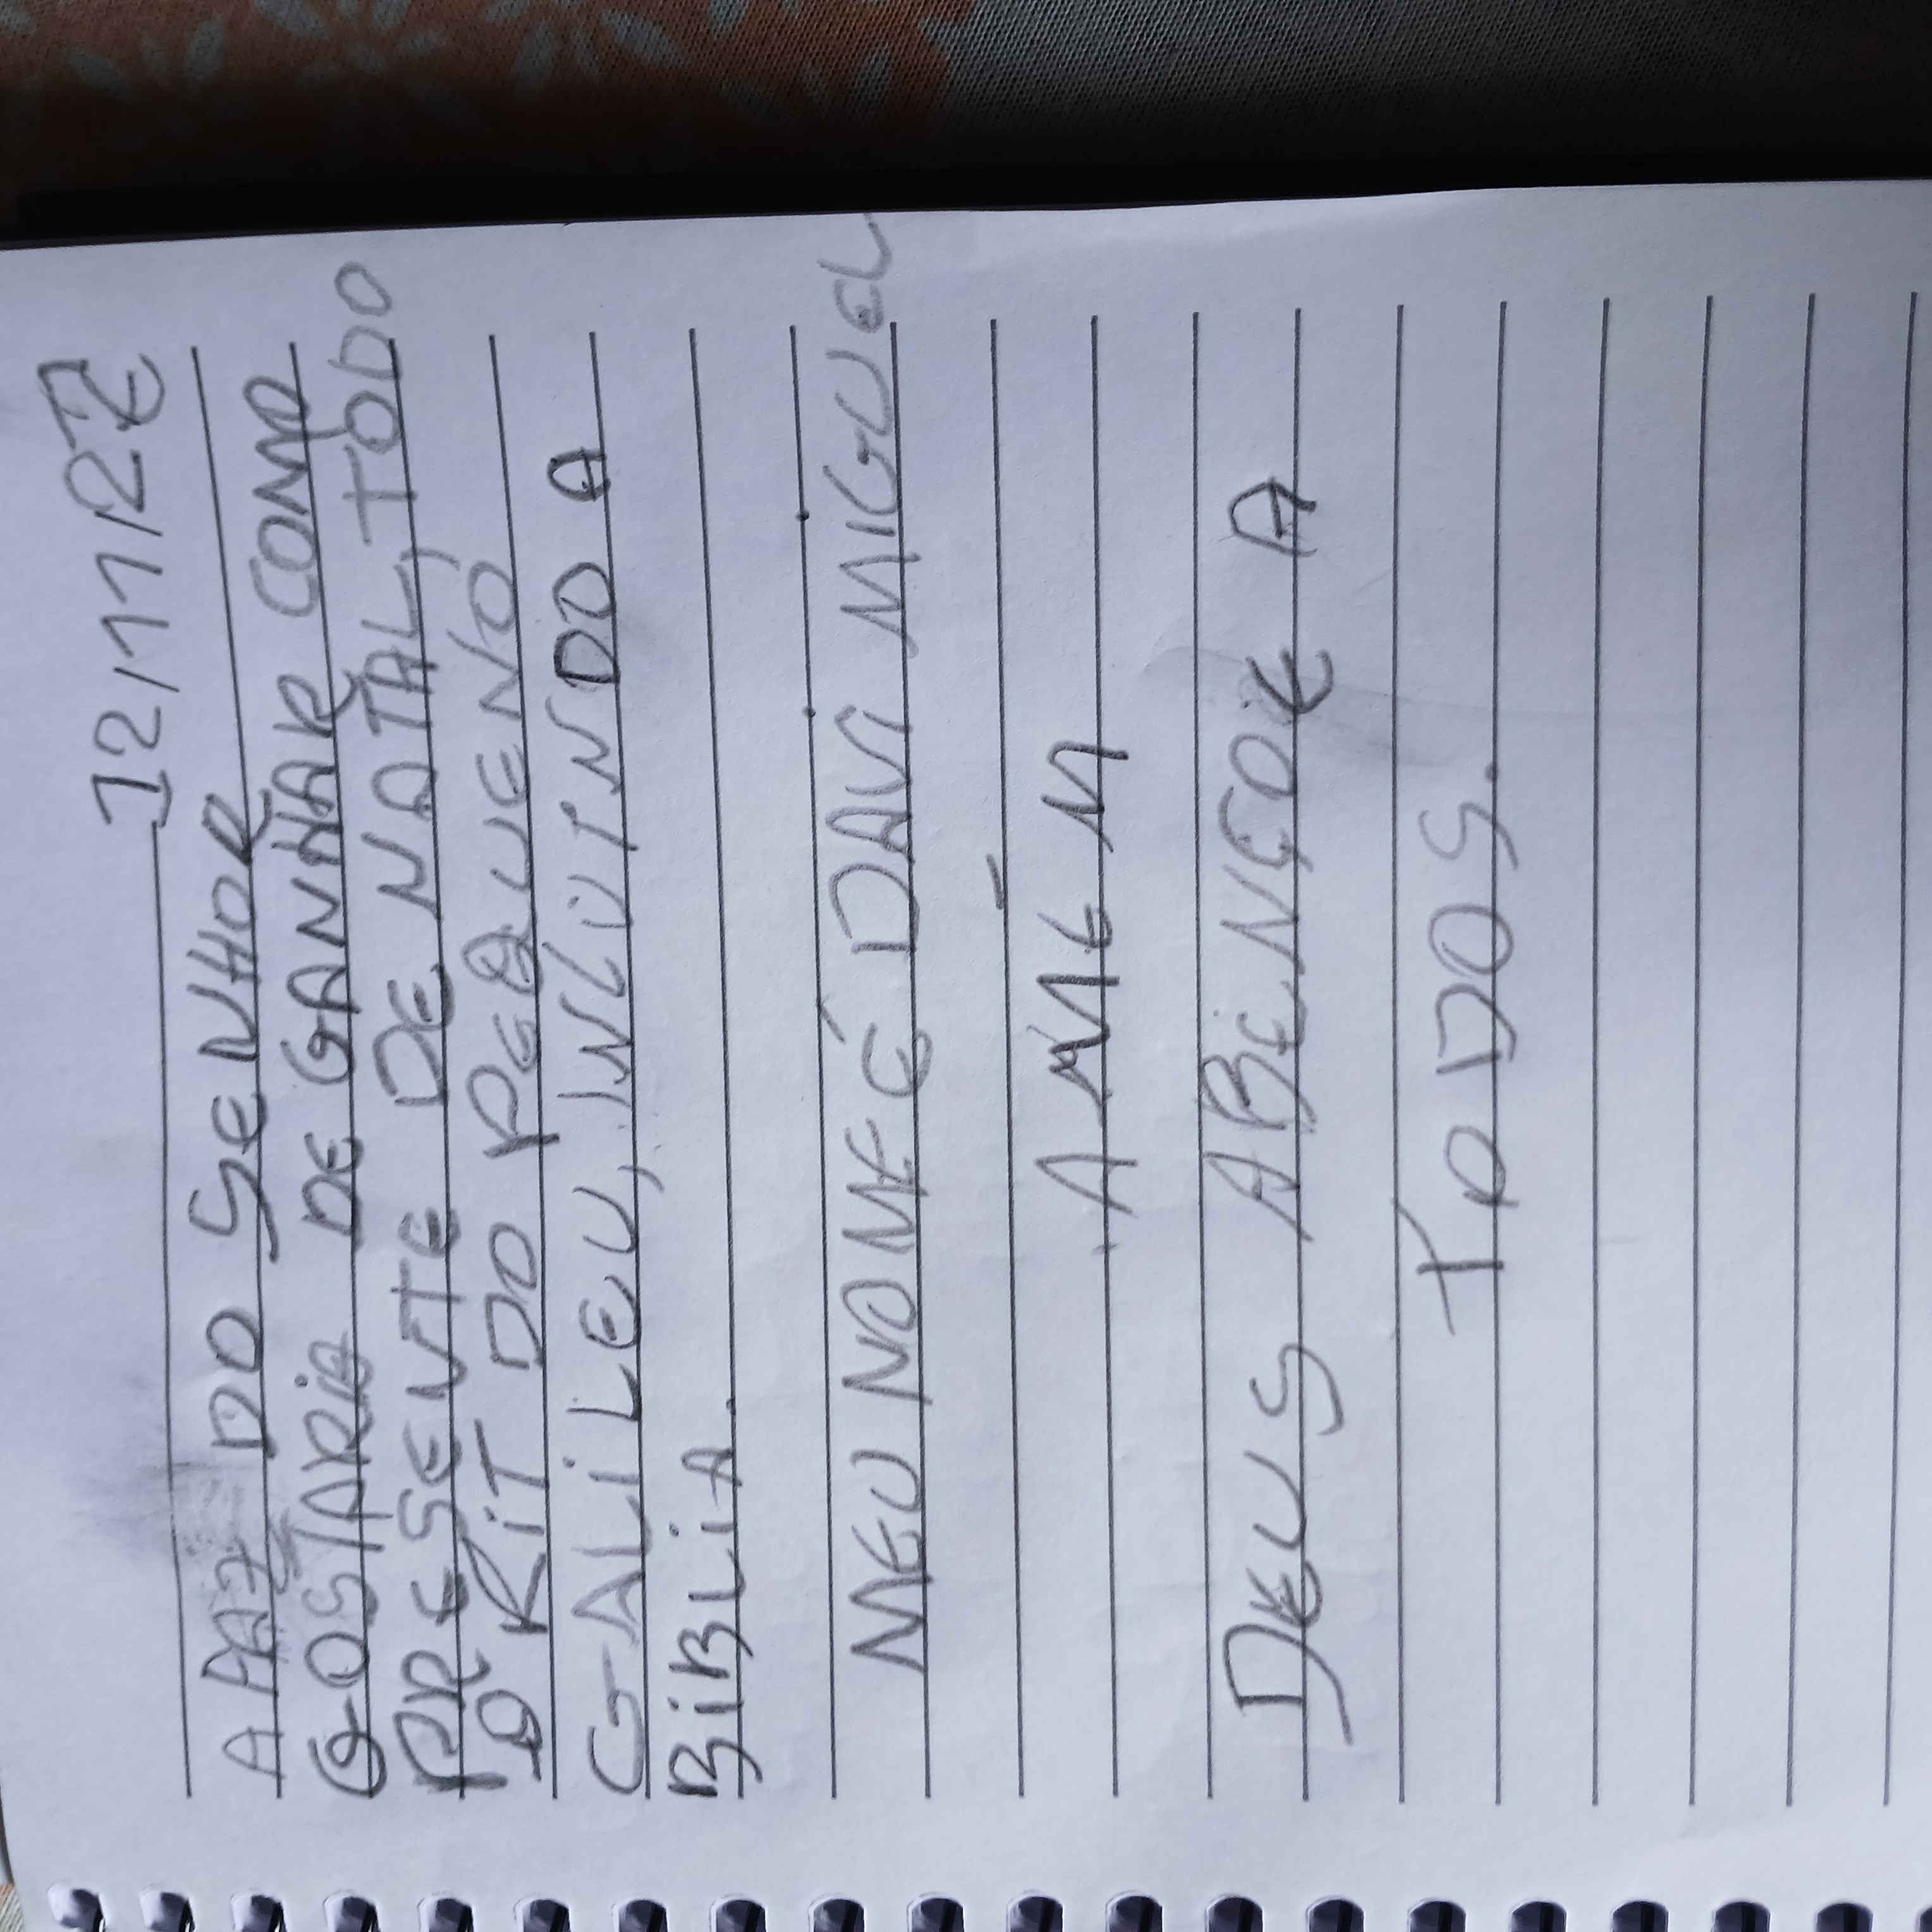 12/11/22
A PAZ DO SENHOR
GOSTARIA DE GANHAR COMO
PRESENTE DE NATAL, TODO
O KIT DO PEQUENO
GALILEU, INCLUINDO A
BIBLIA.
MEU NOME É DAVI MIGUEL
AMÉM
DEUS ABENÇOE A
TODOS.